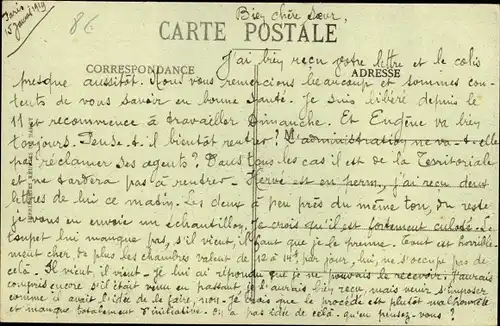 Paris
15 Janvier 1919
86
Bien chère Sœur,
CARTE POSTALE
CORRESPONDANCE
ADRESSE
J'ai bien reçu votre lettre et le colis
presque aussitôt. Nous vous remercions beaucoup et sommes con-
tents de vous savoir en bonne santé. Je suis libéré depuis le
11 et recommence à travailler Dimanche. Et Eugène va bien
toujours. Pense-t-il bientôt rentrer? L'administration ne va-t-elle
pas réclamer ses agents? Dans tous les cas il est de la Territoriale
et ne tardera pas à rentrer. Hervé est en perm, j'ai reçu deux
lettres de lui ce matin. Les deux à peu près du même ton, du reste
je vous en envoie un échantillon. Je crois qu'il est fortement culoté. Le
toupet lui manque pas, s'il vient, il faut que je le prenne. Tout est horrible-
ment cher, de plus les chambres valent de 12 à 14f par jour, lui, ne s'occupe pas de
celà. Il vient, il vient. Je lui ai répondu que je ne pouvais le recevoir. J'aurais
compris encore s'il était venu en passant, je l'aurais bien reçu, mais venir s'imposer
comme il avait l'idée de le faire, non. Je trouve que le procédé est plutôt malhonnête
et manque totalement d'initiative. On a pas idée de celà. qu'en pensez-vous?